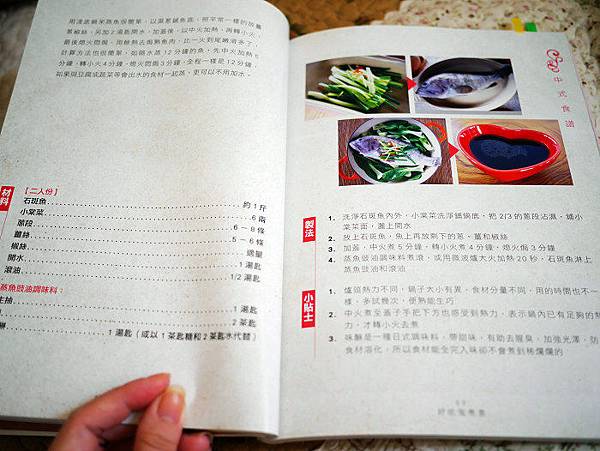 用淺底鍋來蒸魚很簡單，
椒絲，另加2湯匙開水，加蓋後，以中火加熱，再轉小火，
最後熄火悶焗，用餘熱去焗熟魚肉，比一火到尾嫩滑多了。
計算方法也很簡單，如隔水蒸12分鐘的魚，先中火加熱5
分鐘，轉小火4分鐘，熄火悶焗3分鐘，全程一樣是12分鐘。
如果與豆腐或蔬菜等會出水的食材一起蒸，更可以不用加水。
材料
【二人份】
石斑魚 約1斤
小棠菜 6兩
蔥段 6－8條
薑絲 5－6條
椒絲 適量
開水 1湯匙
滾油 1/2湯匙
蒸魚豉油調味料：
生抽 1湯匙
2茶匙
1湯匙（或以1茶匙糖和2茶匙水代替）
中式食譜
製法
1. 洗淨石斑魚內外，小棠菜洗淨鋪鍋底，把2/3的蔥段沾濕，爐小
棠菜面，灑上開水
2. 放上石斑魚，魚上再放剩下的蔥、薑和椒絲
3. 加蓋，中火煮5分鐘，轉小火煮4分鐘，熄火焗3分鐘
4. 蒸魚豉油調味料煮滾，或用微波爐大火加熱20秒，石斑魚淋上
蒸魚豉油和滾油
小貼士
1. 爐頭熱力不同，鍋子大小有異，食材分量不同，用的時間也不一
樣，多試幾次，便熟能生巧
2. 中火煮至蓋子手把下方也感受到熱力，表示鍋內已有足夠的熱
力，才轉小火去煮
3. 味醂是一種日式調味料，帶甜味，有助去腥臭，加強光澤，防
食材溶化，所以食材能全完入味卻不會煮到稀爛爛的